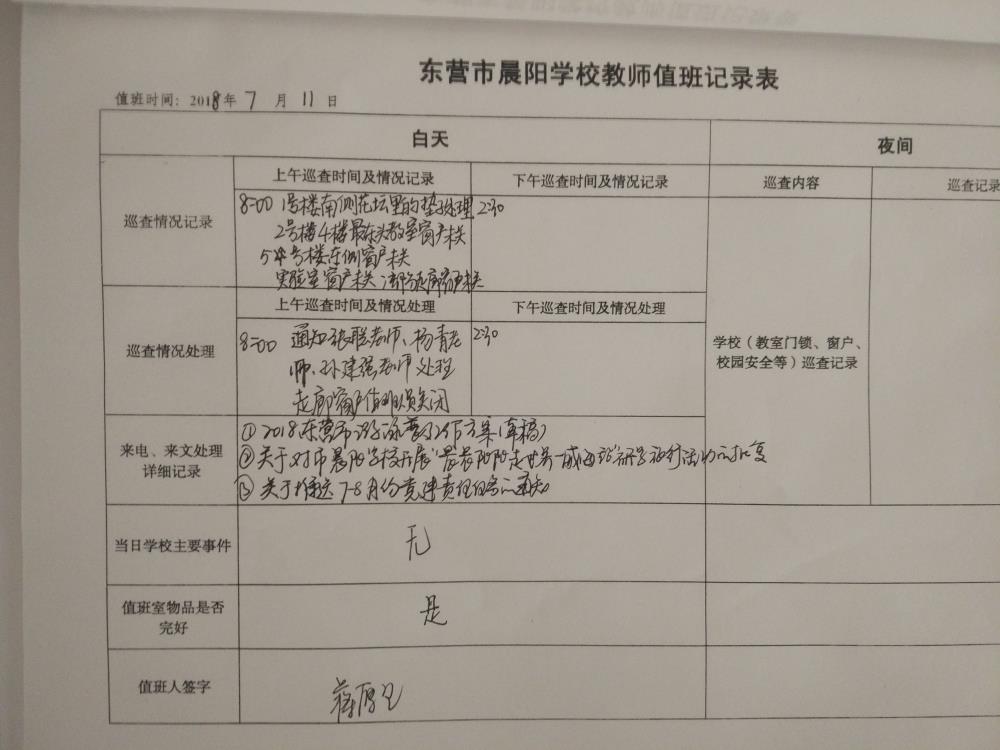 东营市晨阳学校教师值班记录表
值班时间：2018年7月11日
白天
夜间
上午巡查时间及情况记录
下午巡查时间及情况记录
巡查内容
巡查记录
巡查情况记录
8:00 1号楼南侧花坛里的垫子处理
2:30
2号楼4楼最东头教室窗户未关
5号楼东侧窗户未关
实验室窗户未关
上午巡查时间及情况处理
下午巡查时间及情况处理
巡查情况处理
8:00 通知张联老师、杨青老
2:30
师、孙建强老师处理
走廊窗户值班人员关闭
学校（教室门锁、窗户、
校园安全等）巡查记录
来电、来文处理
详细记录
① 2018东营市 方案（草稿）
② 关于对市晨阳学校开展 研学旅行活动的批复
③ 关于推送7-8月份党建责任任务的通知
当日学校主要事件
无
值班室物品是否
完好
是
值班人签字